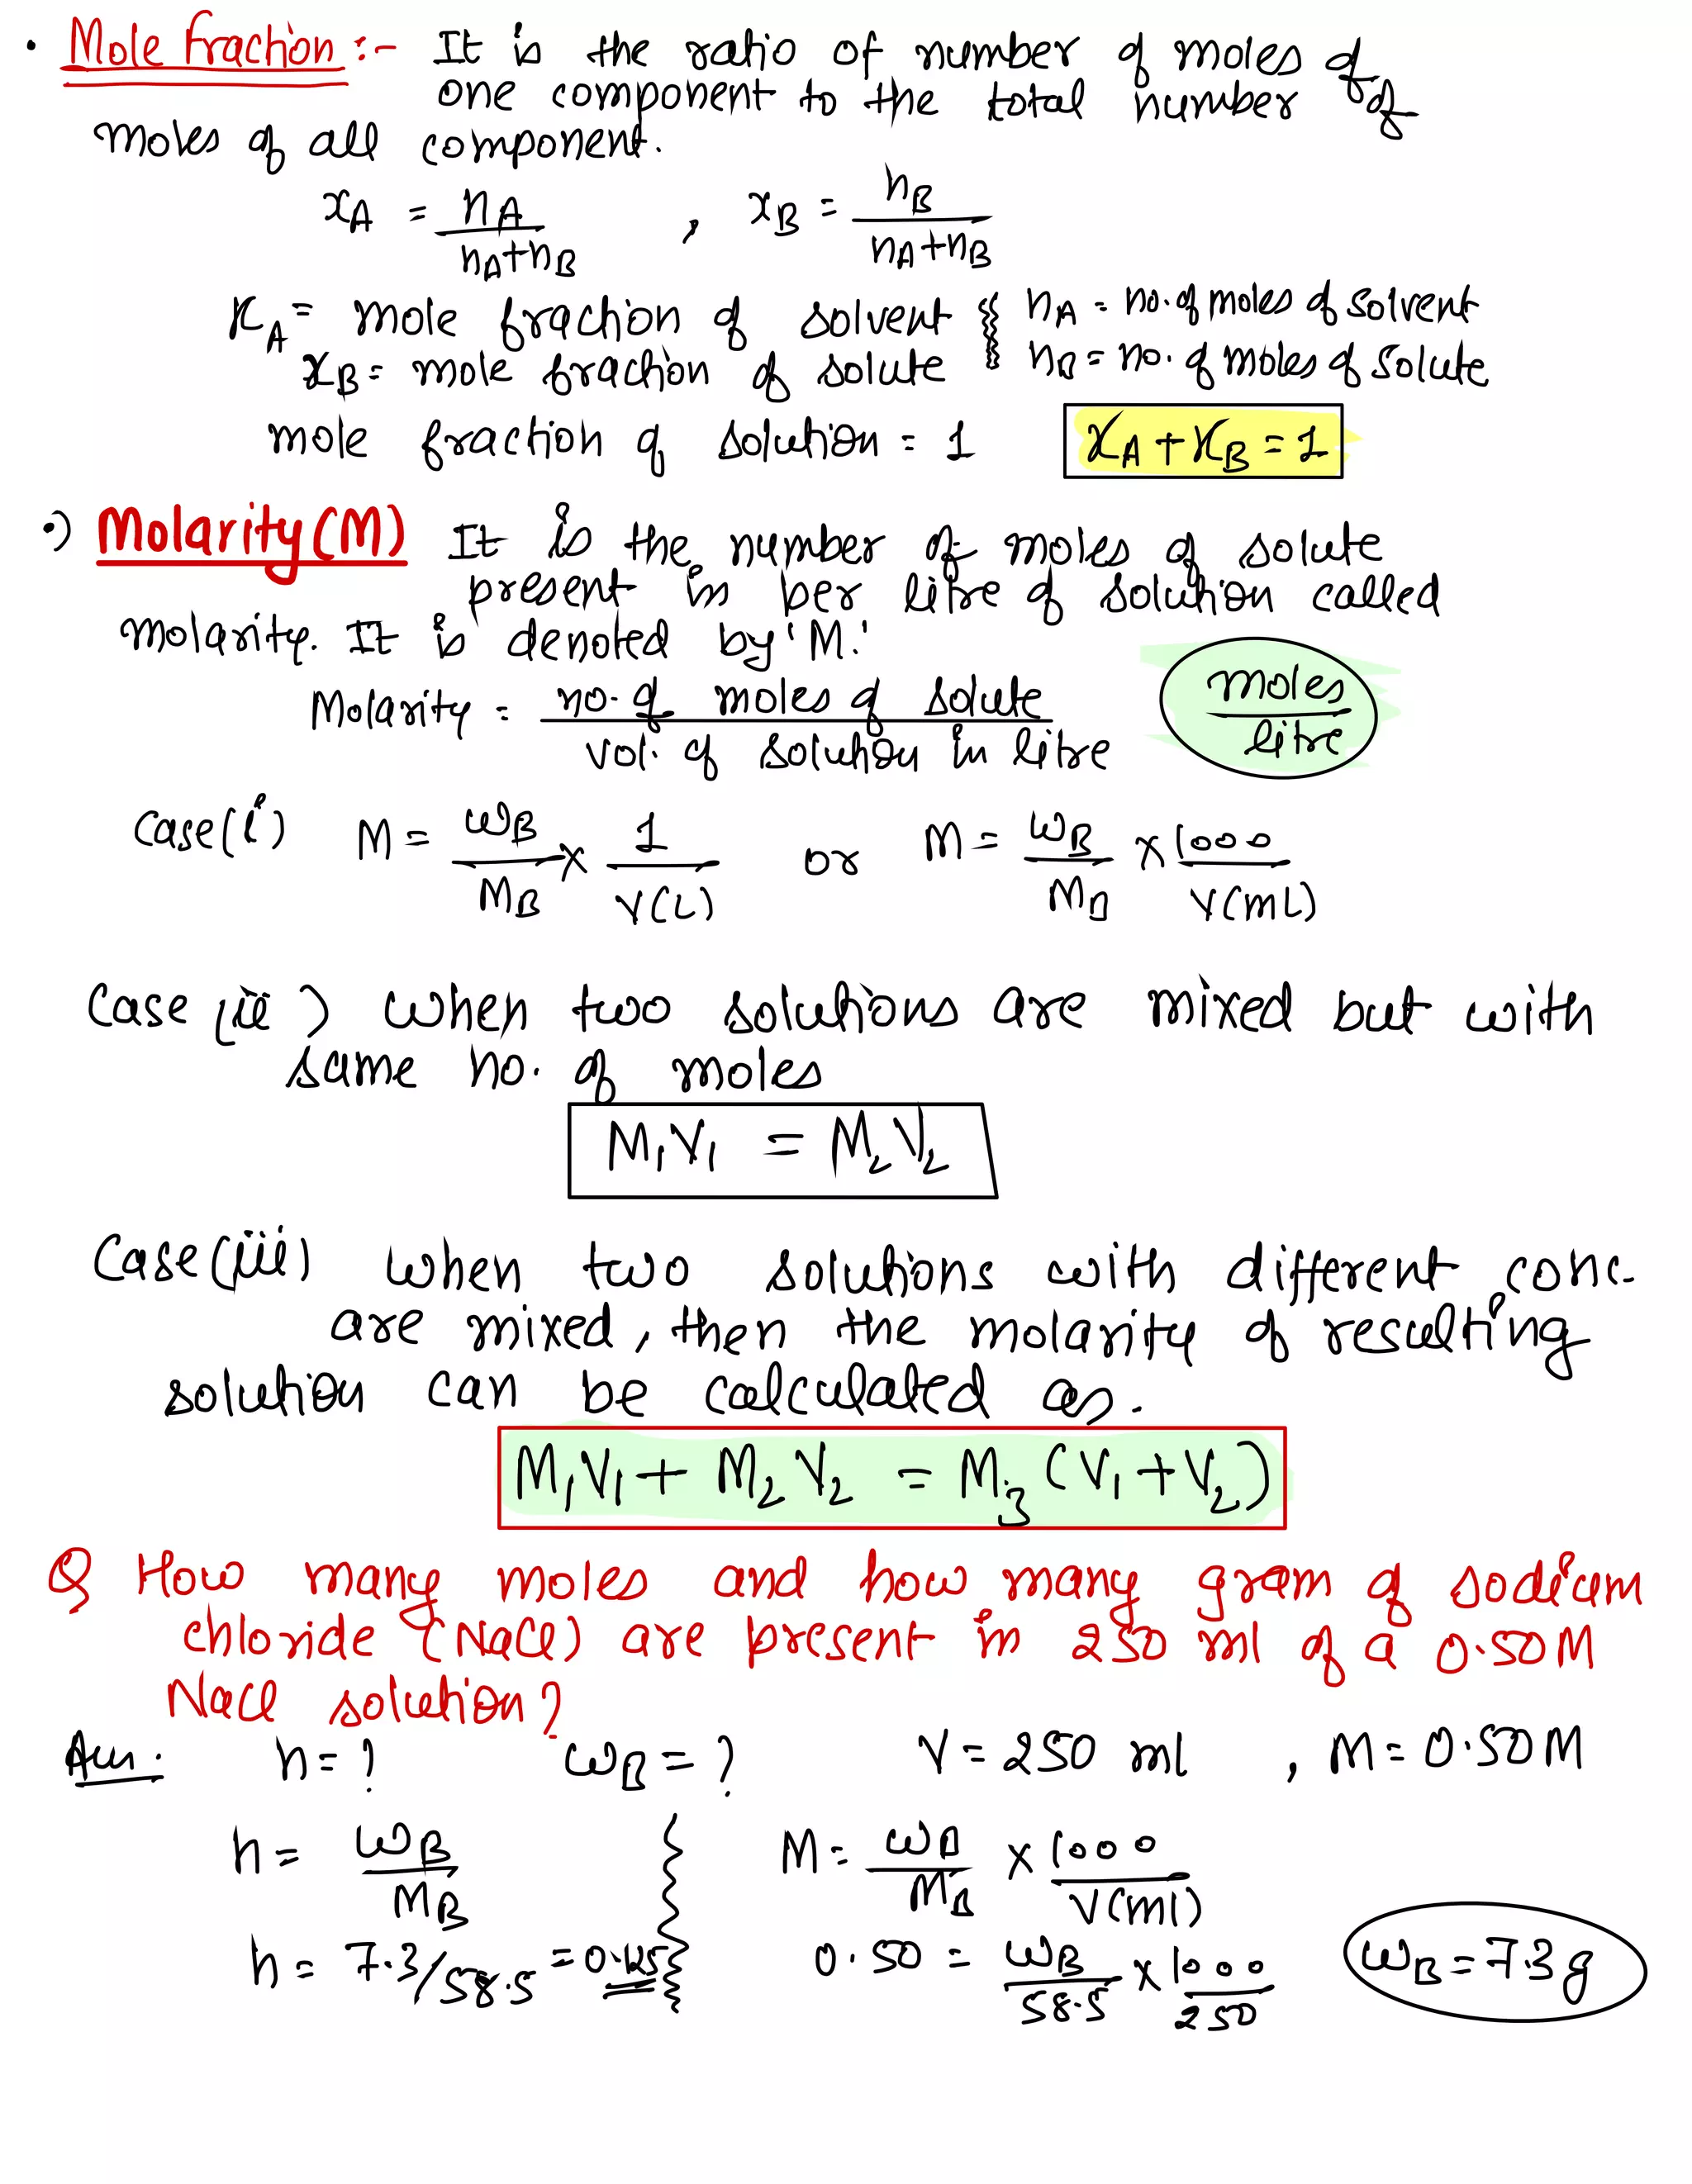 • Mole fraction :- It is the ratio of number of moles of
one component to the total number of
moles of all component.
xA = nA / nA+nB , xB = nB / nA+nB
xA = mole fraction of solvent nA = no. of moles of solvent
xB = mole fraction of solute nB = no. of moles of solute
mole fraction of solution = 1 xA + xB = 1
•) Molarity (M) It is the number of moles of solute
present in per litre of solution called
molarity. It is denoted by 'M'.
Molarity = no. of moles of solute / vol. of solution in litre moles / litre
Case (i) M = wB / MB × 1 / V(L) or M = wB / MB × 1000 / V(mL)
Case (ii) When two solutions are mixed but with
same no. of moles
M1V1 = M2V2
Case (iii) When two solutions with different conc.
are mixed, then the molarity of resulting
solution can be calculated as.
M1V1 + M2V2 = M3 (V1+V2)
Q How many moles and how many gram of sodium
chloride (NaCl) are present in 250 ml of a 0.50M
NaCl solution?
Ans. n = ? wB = ? V = 250 ml , M = 0.50M
n = wB / MB M = wB / MB × 1000 / V(ml)
n = 7.3/58.5 = 0.125 0.50 = wB / 58.5 × 1000 / 250 wB = 7.3 g